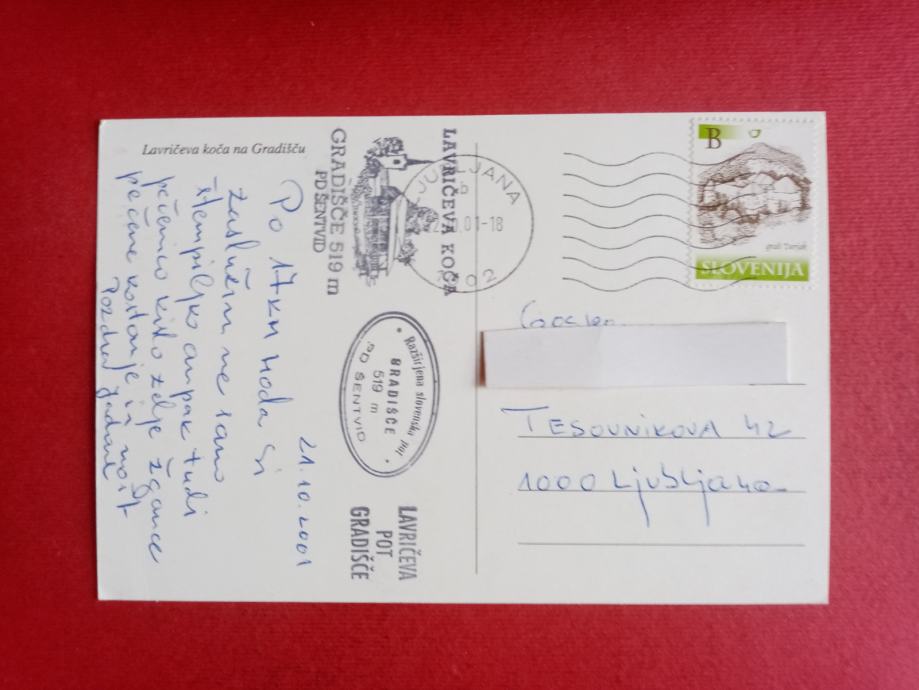 Lavričeva koča na Gradišču
21.10.2001
Po 17 km hoda si
zaslužim ne samo
štempiljko ampak tudi
pečenico kislo zelje žgance
pečene kostanje in mošt
Pozdrav
LAVRIČEVA KOČA
GRADIŠČE 519 m
PD ŠENTVID
Razširjena slovenska pot
GRADIŠČE
519 m
PD ŠENTVID
LAVRIČEVA
POT
GRADIŠČE
LJUBLJANA
01-18
02
B
grad Turjak
SLOVENIJA
TESOVNIKOVA 42
1000 Ljubljana